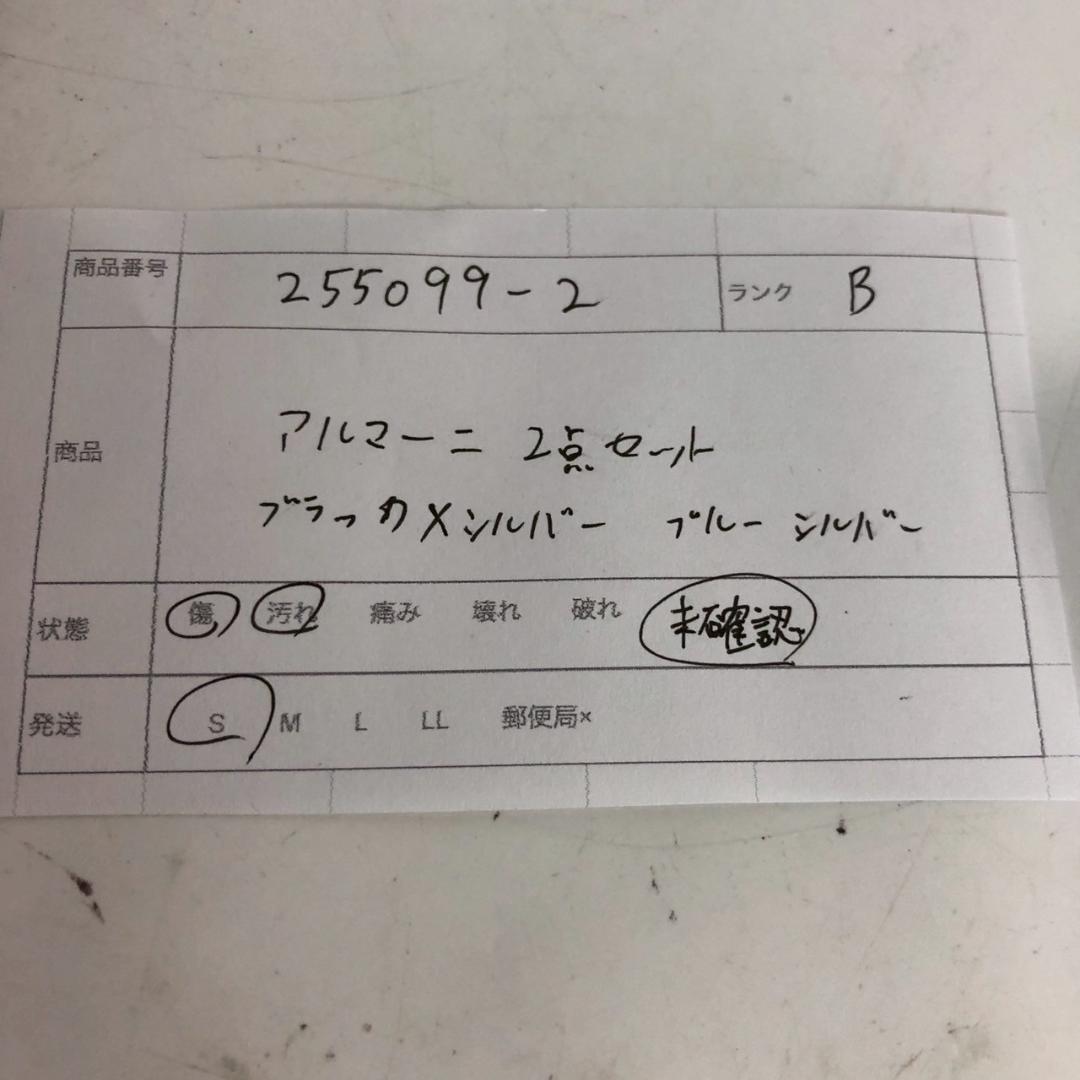 商品番号 255099-2 ランク B
商品
アルマーニ 2点セット
ブラック×シルバー ブルーシルバー
状態 傷 汚れ 痛み 壊れ 破れ 未確認
発送 S M L LL 郵便局×